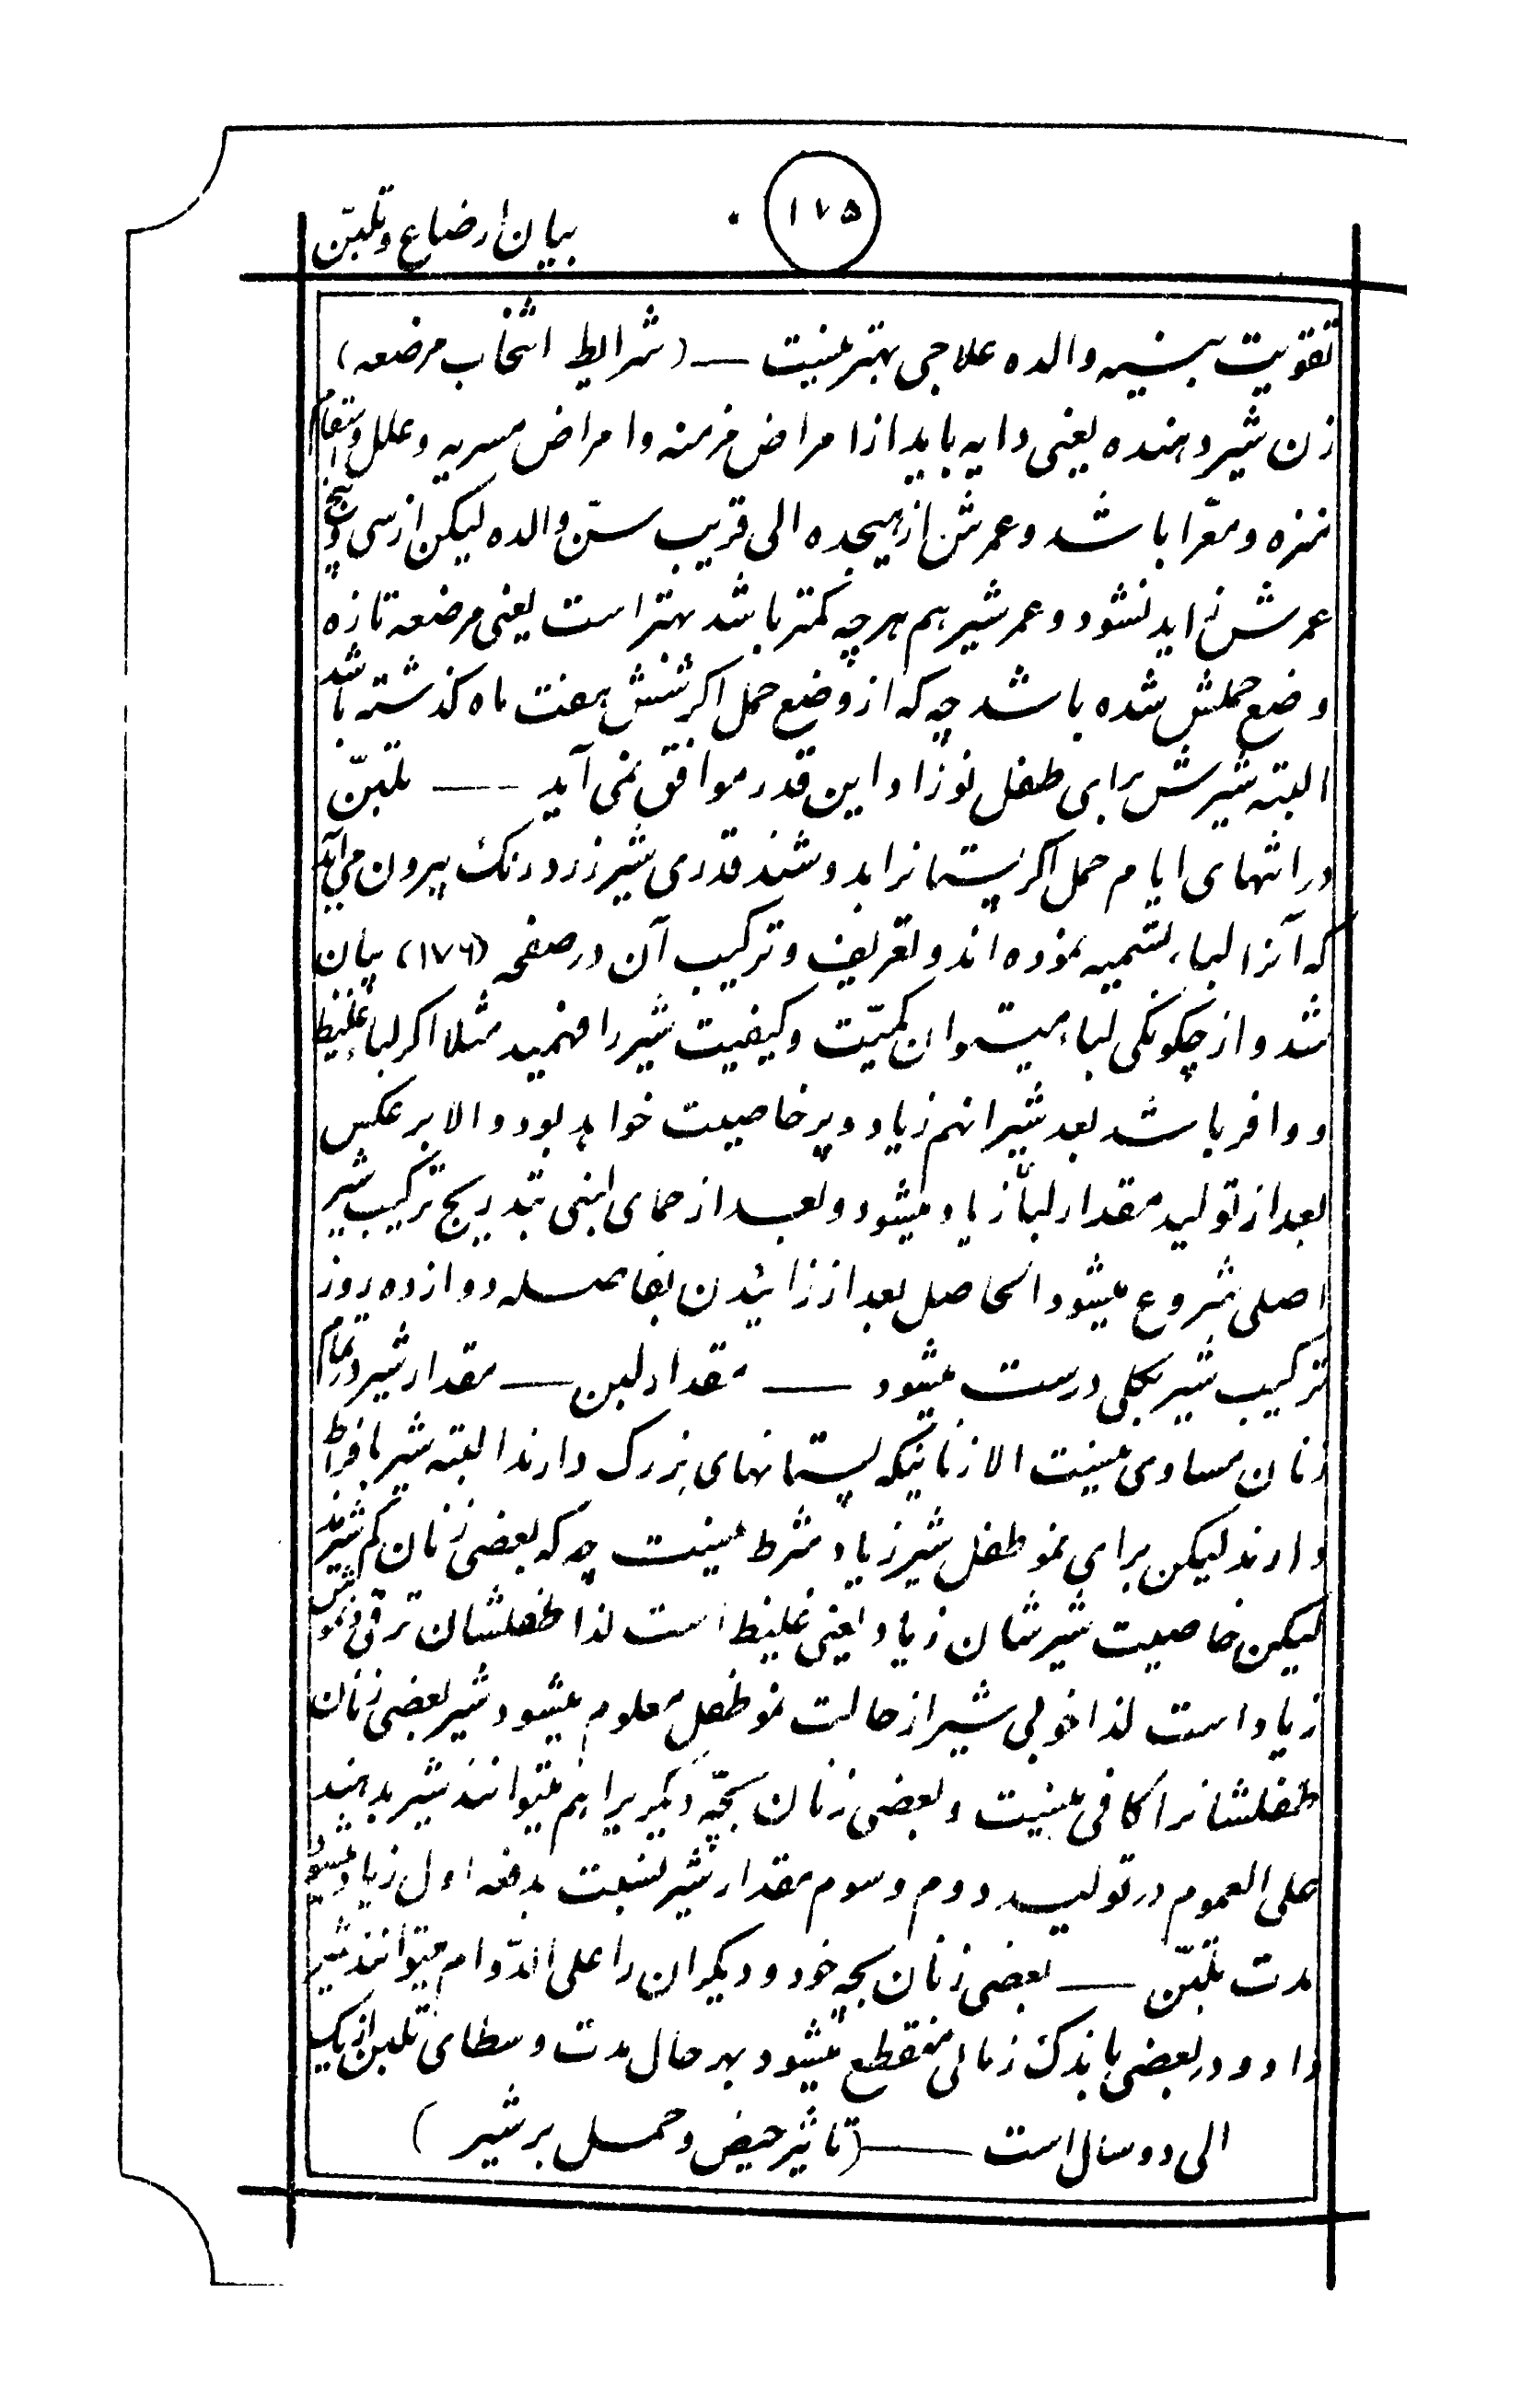 ۱۷۵
بیان ارضاع و تلبّن
تقویت بنیه والده علاجی بهتر نیست — (شرایط انتخاب مرضعه)
زن شیر دهنده یعنی دایه باید از امراض مزمنه و امراض مسریه و علل و اسقام
منزه و معرّا باشد و عمرش از هیجده الی قریب سنّ والده لیکن از سی و پنج
عمرش زاید نشود و عمر شیر هم هرچه کمتر باشد بهتر است یعنی مرضعه تازه
وضع حملش شده باشد چه که از وضع حمل اکر شش هفت ماه کذشته باشد
البته شیرش برای طفل نوزاد این قدر موافق نمی آید — تلبّن
در انتهای ایام حمل اکر پستانرا بدوشند قدری شیر زرد رنک بیرون می‌آید
که آنرا لباء تسمیه نموده اند و تعریف و ترکیب آن در صفحه (۱۷۶) بیان
شد و از چکونکی لباء میتوان کمیّت و کیفیت شیر را فهمید مثلا اکر لباء غلیظ
و وافر باشد بعد شیر انهم زیاد و پر خاصیت خواهد بود و الا بر عکس
بعد از تولید مقدار لبأ زیاد میشود و بعد از حمای لبنی بتدریج ترکیب شیر
اصلی شروع میشود الحاصل بعد از زائیدن بفاصله دوازده روز
ترکیب شیر بکلی درست میشود — مقدار لبن — مقدار شیر در تمام
زنان مساوی نیست الا زنانیکه پستانهای بزرک دارند البته شیر بافراط
دارند لیکن برای نمو طفل شیر زیاد شرط نیست چه که بعضی زنان کم شیرند
لیکن خاصیت شیرشان زیاد یعنی غلیظ است لذا طفلشان ترقی و نموش
زیاد است لذا خوبی شیر از حالت نمو طفل معلوم میشود شیر بعضی زنان
طفلشانرا کافی نیست و بعضی زنان بچّه دیکریرا هم میتوانند شیر بدهند
علی العموم در تولید دوم و سوم مقدار شیر نسبت بدفعه اول زیاد میشود
مدت تلبّن — بعضی زنان بچه خود و دیکران را علی الدّوام میتوانند شیر
داد و در بعضی باندک زمانی منقطع میشود بهر حال مدت وسطای تلبن از یک
الی دو سال است — (تاثیر حیض و حمل بر شیر)